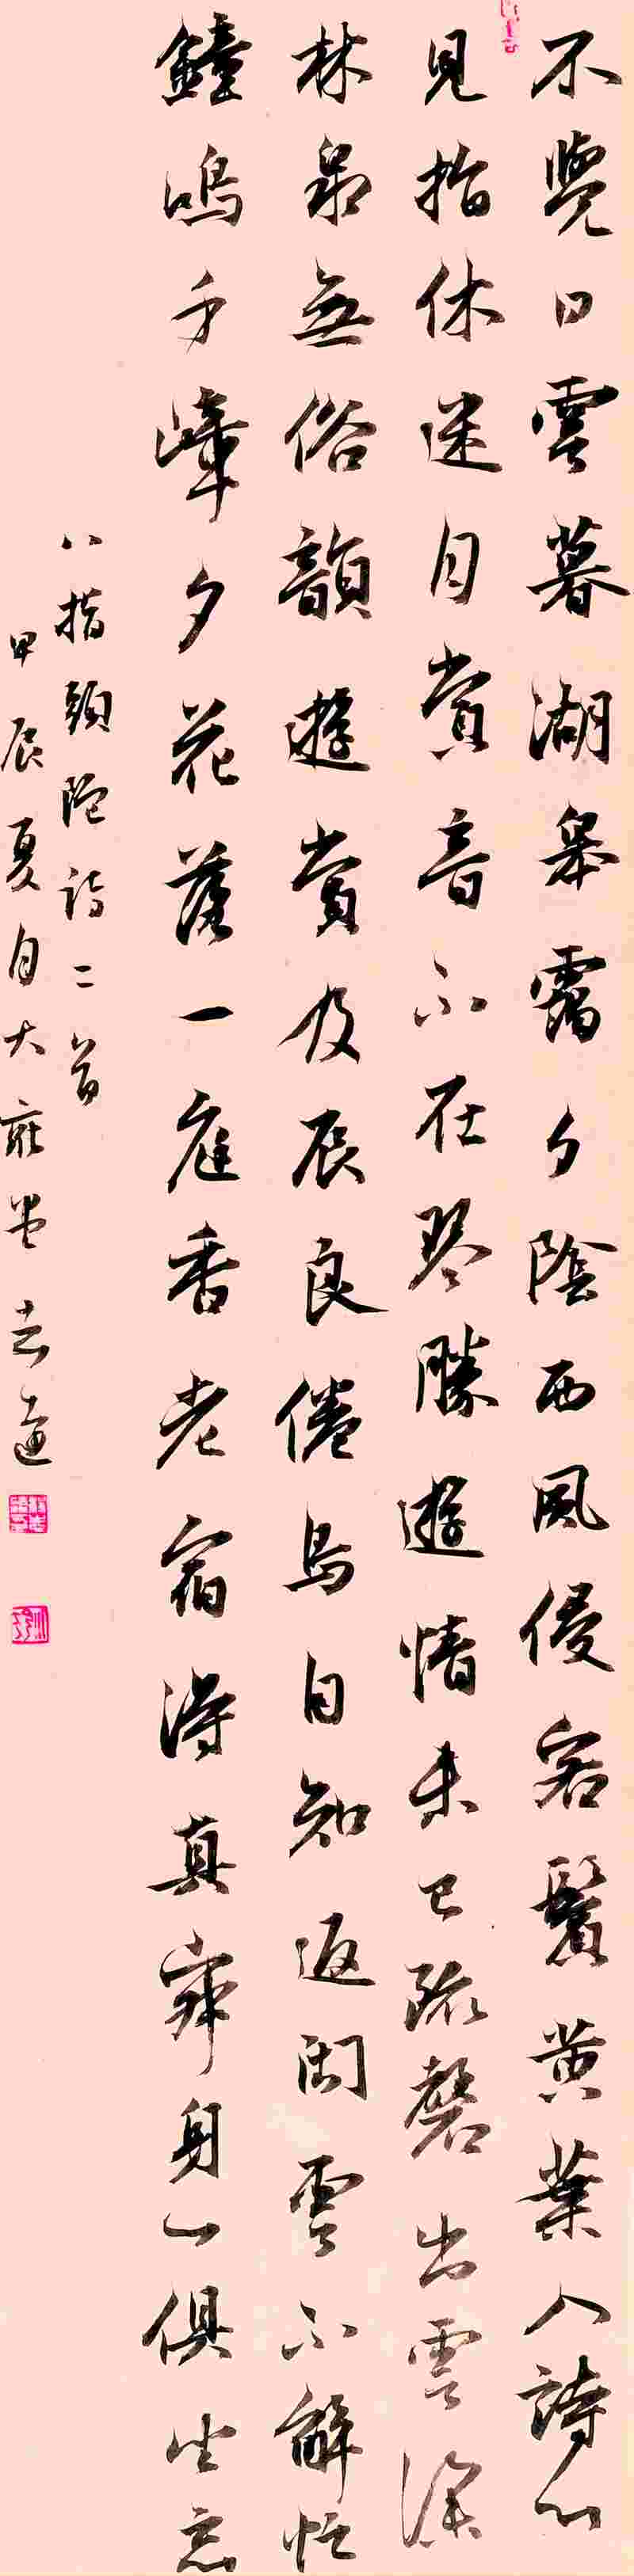 不覺日雲暮湖皋靄夕陰西風侵客鬢黄葉入詩心
見指休迷月賞音不在琴勝遊情未已疏磬出雲深
林泉無俗韻遊賞及辰良倦鳥自知返閑雲不解忙
鐘鳴千嶂夕花落一庭香老宿得真寂身心俱坐忘
八指頭陀詩二首
甲辰夏月大雅堂去迹